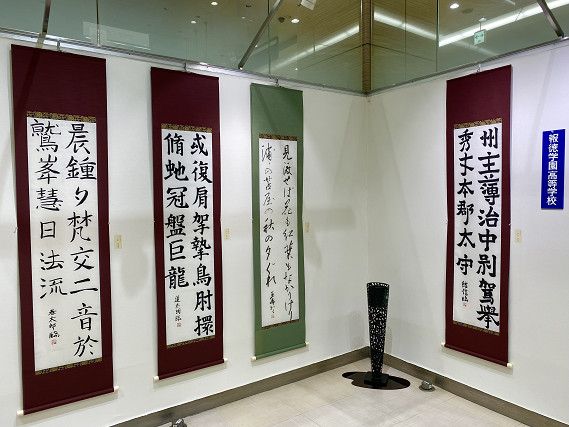 晨鍾夕梵交二音於
鷲峯慧日法流
或復肩挐摯鳥肘擐
脩虵冠盤巨龍
見渡せば花も紅葉もなかりけり
浦の苫屋の秋の夕ぐれ
州主薄治中別駕舉
秀才本郡太守
報徳学園高等学校